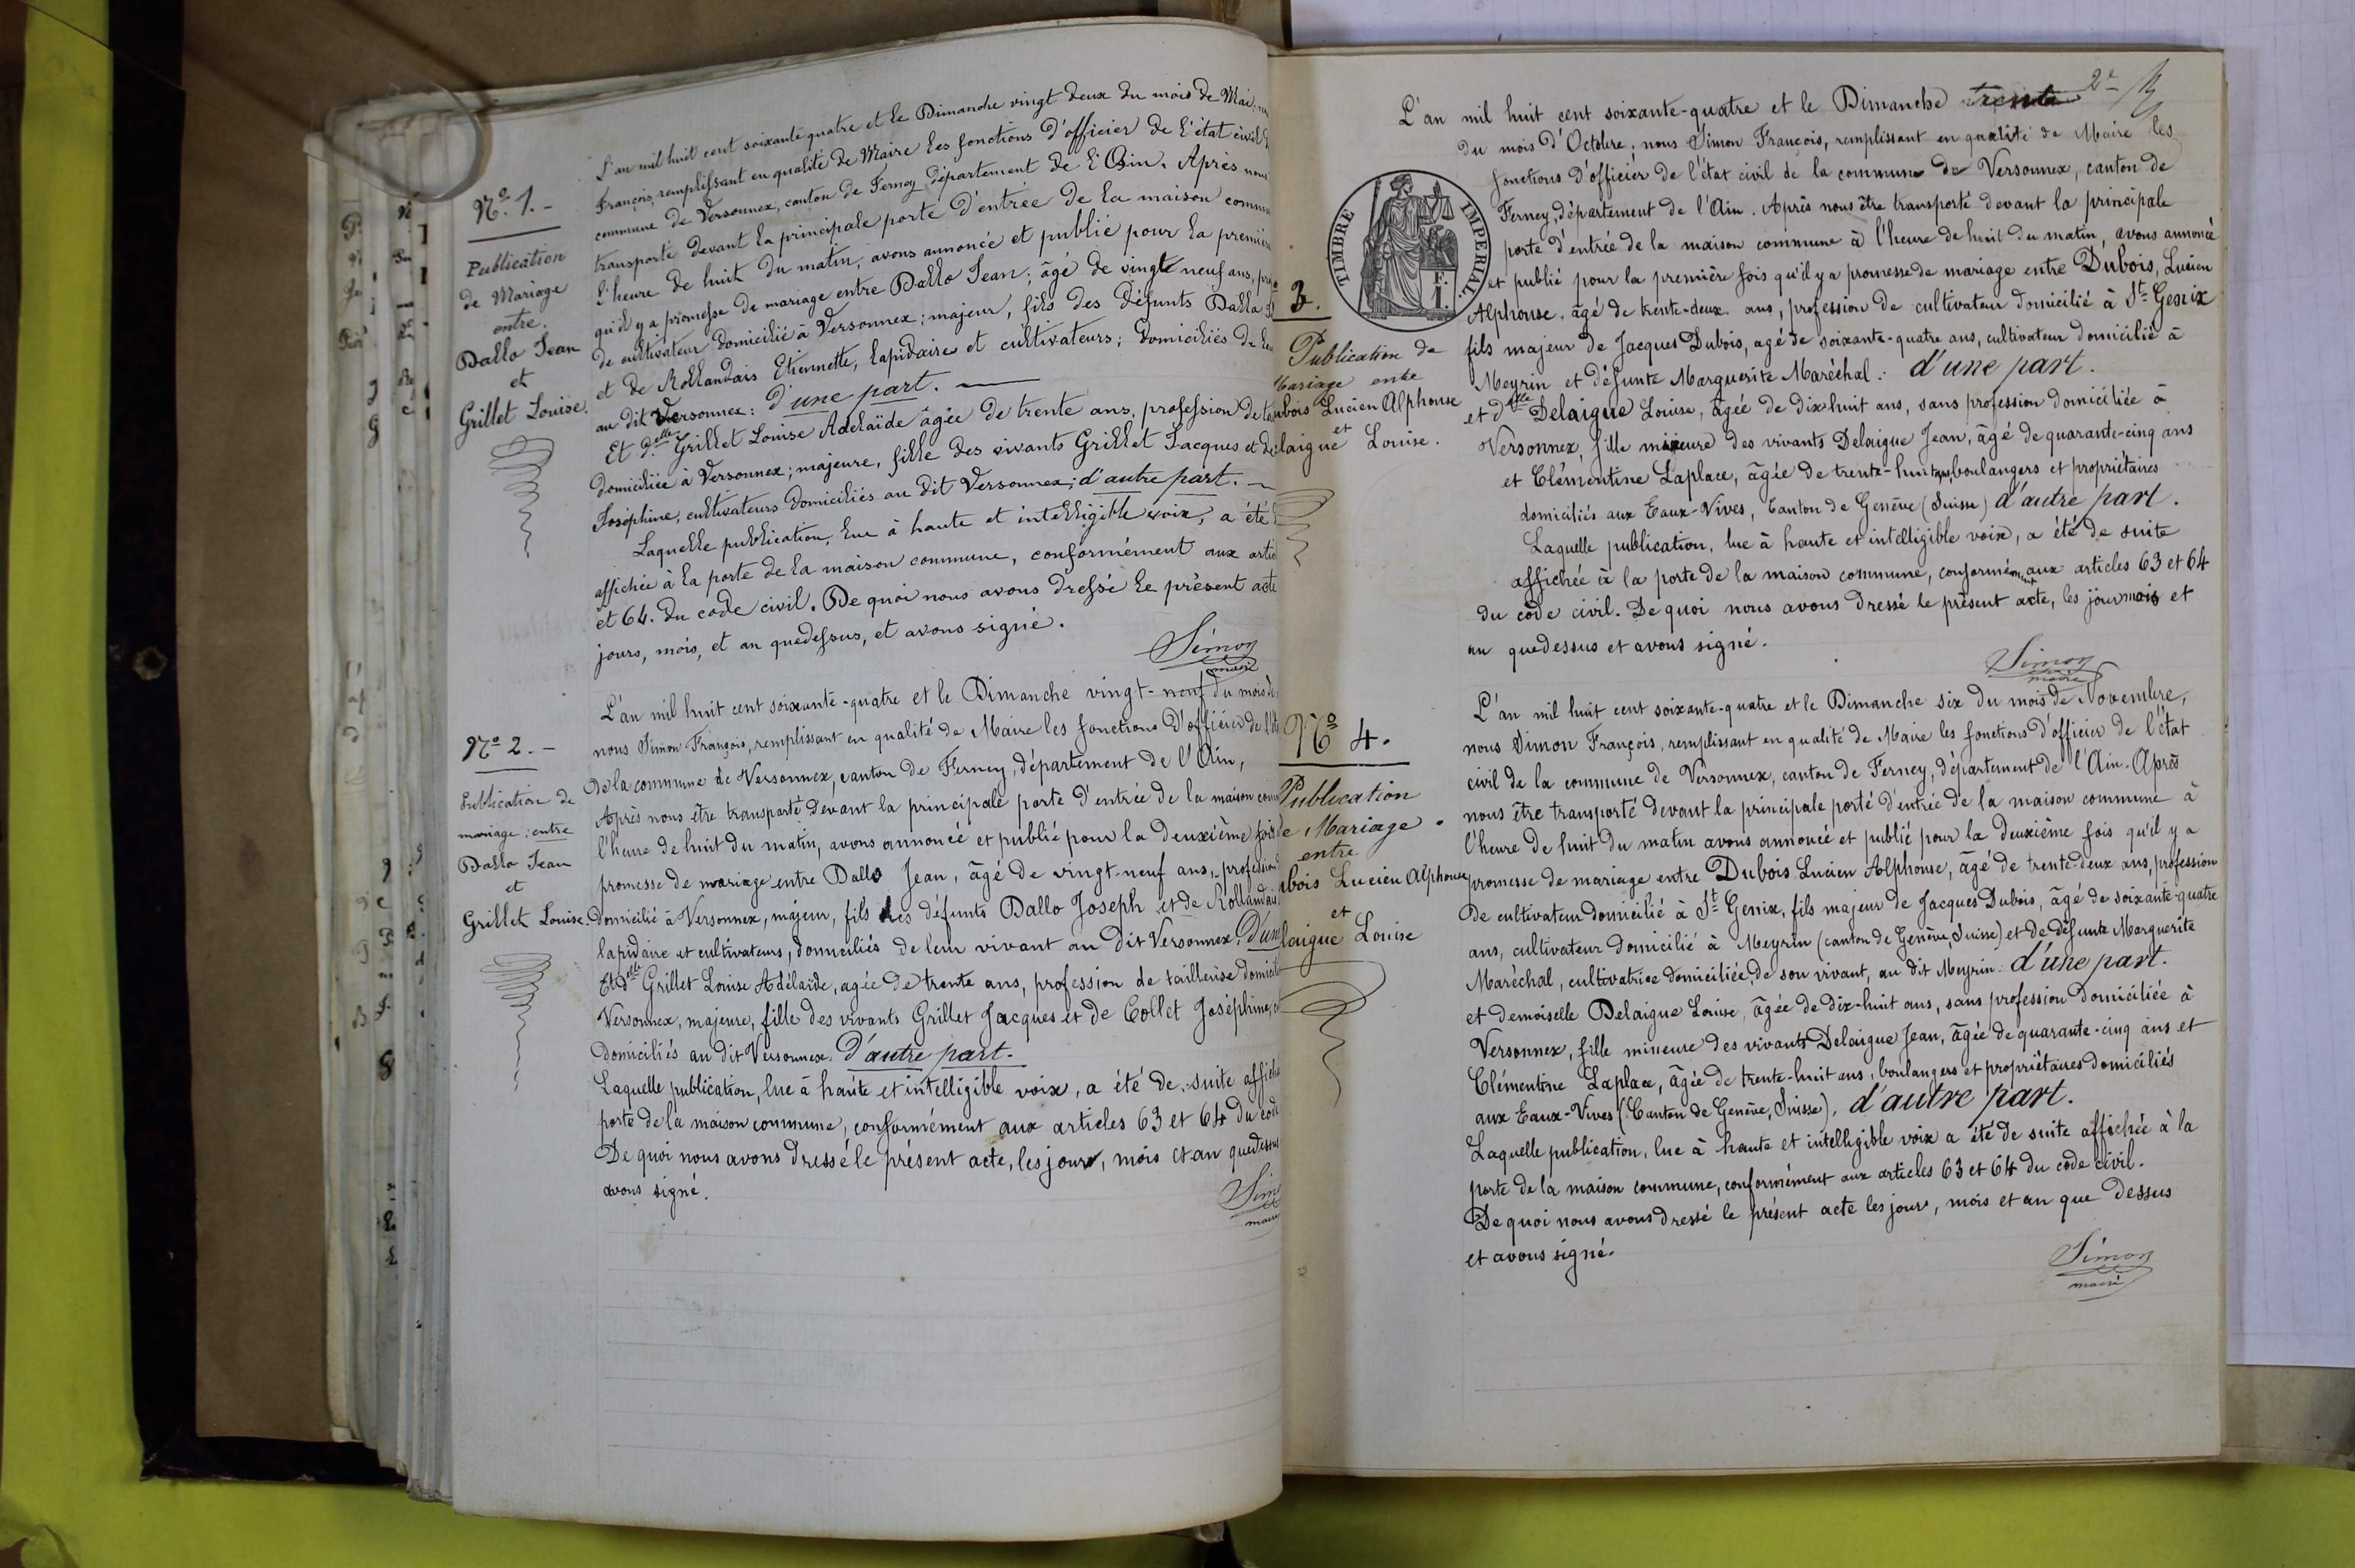 Nº 1. -
Publication
de Mariage
entre.
Dallo Jean
et
Grillet Louise.
L'an mil huit cent soixante quatre et le Dimanche vingt deux du mois de Mai,
François, remplissant en qualité de Maire les fonctions d'officier de l'état civil
commune de Versonnex, canton de Ferney département de l'Ain. Après nous
transporté devant la principale porte d'entrée de la maison commu
l'heure de huit du matin, avons annoncé et publié pour la premièr
qu'il y a promesse de mariage entre Dallo Jean; âgé de vingt neuf ans, pro
de cultivateur domicilié à Versonnex; majeur, fils des défunts Dallo
et de Rollandais Etiennette, lapidaire et cultivateurs; domiciliés de leu
au dit Versonnex: d'une part.
Et d.elle Grillet Louise Adelaïde âgée de trente ans, profession de ta
domiciliée à Versonnex; majeure, fille des vivants Grillet Jacques et de
Joséphine, cultivateurs domiciliés au dit Versonnex; d'autre part.
Laquelle publication, lue à haute et intelligible voix, a été
affichée à la porte de la maison commune, conformément aux artic
et 64. du code civil. De quoi nous avons dressé le présent acte
jours, mois, et an quedessus, et avons signé.
Simon
maire
Nº 2. -
Publication de
mariage: entre
Dallo Jean
et
Grillet Louise.
L'an mil huit cent soixante-quatre et le Dimanche vingt-neuf du mois de
nous Simon François, remplissant en qualité de Maire les fonctions d'officier de l'ét
de la commune de Versonnex, canton de Ferney, département de l'Ain,
Après nous être transporté devant la principale porte d'entrée de la maison com
l'heure de huit du matin, avons annoncé et publié pour la deuxième fois
promesse de mariage entre Dallo Jean, âgé de vingt-neuf ans, profession
domicilié à Versonnex, majeur, fils des défunts Dallo Joseph et de Rollandai
lapidaire et cultivateurs, domiciliés de leur vivant au dit Versonnex. d'une
Et d.elle Grillet Louise Adélaïde, agée de trente ans, profession de tailleuse domicili
Versonnex, majeure, fille des vivants Grillet Jacques et de Collet Joséphine,
domiciliés au dit Versonnex. d'autre part.
Laquelle publication, lue à haute et intelligible voix, a été de suite affiché
porte de la maison commune, conformément aux articles 63 et 64 du cod
De quoi nous avons dressé le présent acte, les jour, mois et an quedessus
avons signé.
Simo
maire
2e
TIMBRE IMPERIAL.
3.
Publication de
Mariage entre
ubois Lucien Alphonse
et
laigue Louise.
L'an mil huit cent soixante-quatre et le Dimanche trente
du mois d'Octobre, nous Simon François, remplissant en qualité de Maire les
fonctions d'officier de l'état civil de la commune de Versonnex, canton de
Ferney, département de l'Ain. Après nous être transporté devant la principale
porte d'entrée de la maison commune à l'heure de huit du matin, avons annoncé
et publié pour la première fois qu'il y a promesse de mariage entre Dubois, Lucien
Alphonse, âgé de trente-deux ans, profession de cultivateur domicilié à St Genix
fils majeur de Jacques Dubois, agé de soixante-quatre ans, cultivateur domicilié à
Meyrin et défunte Marguerite Maréchal: d'une part.
et delle Delaigue Louise, âgée de dix huit ans, sans profession domiciliée à
Versonnex, fille mineure des vivants Delaigue Jean, âgé de quarante-cinq ans
et Clémentine Laplace, âgée de trente-huit ans, boulangers et propriétaires
domiciliés aux Eaux-Vives, Canton de Genève (Suisse) d'autre part.
Laquelle publication, lue à haute et intelligible voix, a été de suite
affichée à la porte de la maison commune, conformément aux articles 63 et 64
du code civil. De quoi nous avons dressé le présent acte, les jour mois et
an quedessus et avons signé.
Simon
maire
Nº 4.
Publication
de Mariage
entre
ubois Lucien Alphonse
et
laigue Louise
L'an mil huit cent soixante-quatre et le Dimanche six du mois de Novembre,
nous Simon François, remplissant en qualité de Maire les fonctions d'officier de l'état
civil de la commune de Versonnex, canton de Ferney, département de l'Ain. Après
nous être transporté devant la principale porté d'entrée de la maison commune à
l'heure de huit du matin avons annoncé et publié pour la deuxième fois qu'il y a
promesse de mariage entre Dubois Lucien Alphonse, âgé de trente-deux ans, profession
de cultivateur domicilié à St Genix, fils majeur de Jacques Dubois, âgé de soixante-quatre
ans, cultivateur domicilié à Meyrin (canton de Genève, Suisse) et de défunte Marguerite
Maréchal, cultivatrice domiciliée, de son vivant, au dit Meyrin. d'une part.
et demoiselle Delaigue Louise, âgée de dix-huit ans, sans profession domiciliée à
Versonnex, fille mineure des vivants Delaigue Jean, âgée de quarante-cinq ans et
Clémentine Laplace, âgée de trente-huit ans, boulangers et propriétaires domiciliés
aux Eaux-Vives (Canton de Genève, Suisse), d'autre part.
Laquelle publication, lue à haute et intelligible voix a été de suite affichée à la
porte de la maison commune, conformément aux articles 63 et 64 du code civil.
De quoi nous avons dressé le présent acte les jour, mois et an que dessus
et avons signé.
Simon
maire